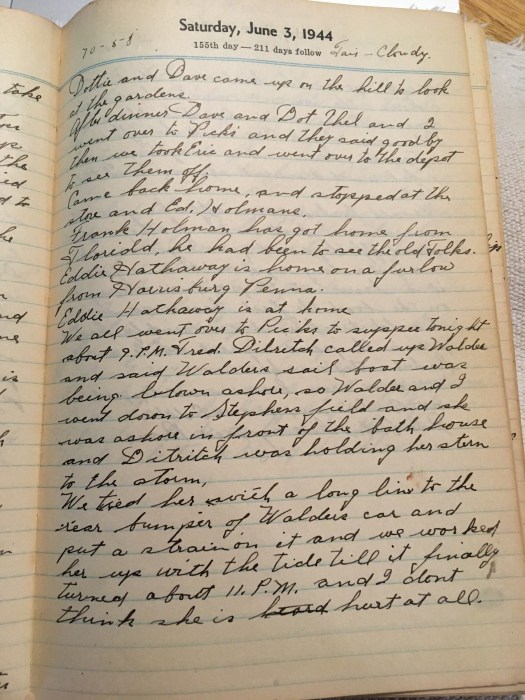 Saturday, June 3, 1944
70-58
155th day — 211 days follow Fair - Cloudy.
Dottie and Dave came up on the hill to look
at the gardens.
After dinner Dave and Dot Thel and I
went over to Picks and they said good by
then we took Eric and went over to the depot
to see them off.
Came back home, and stopped at the
stoe and Ed. Holmans.
Frank Holman has got home from
Florida, he had been to see the old folks.
Eddie Hathaway is home on a furlow
from Harrisburg Penna.
Eddie Hathaway is at home
We all went over to Picks to suppee tonight
about 9. P.M. Fred. Ditritch called up Walder
and said Walders sail boat was
being blown ashore, so Walder and I
went down to Stephens field and she
was ashore in front of the bath house
and Ditritch was holding her stern
to the storm,
We tied her with a long line to the
rear bumper of Walders car and
put a strain on it and we worked
her up with the tide till it finally
turned about 11. P.M. and I dont
think she is hurt at all.